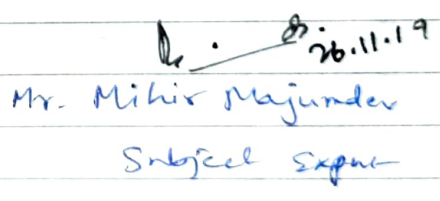 26.11.19
Mr. Mihir Majumder
Subject Expert